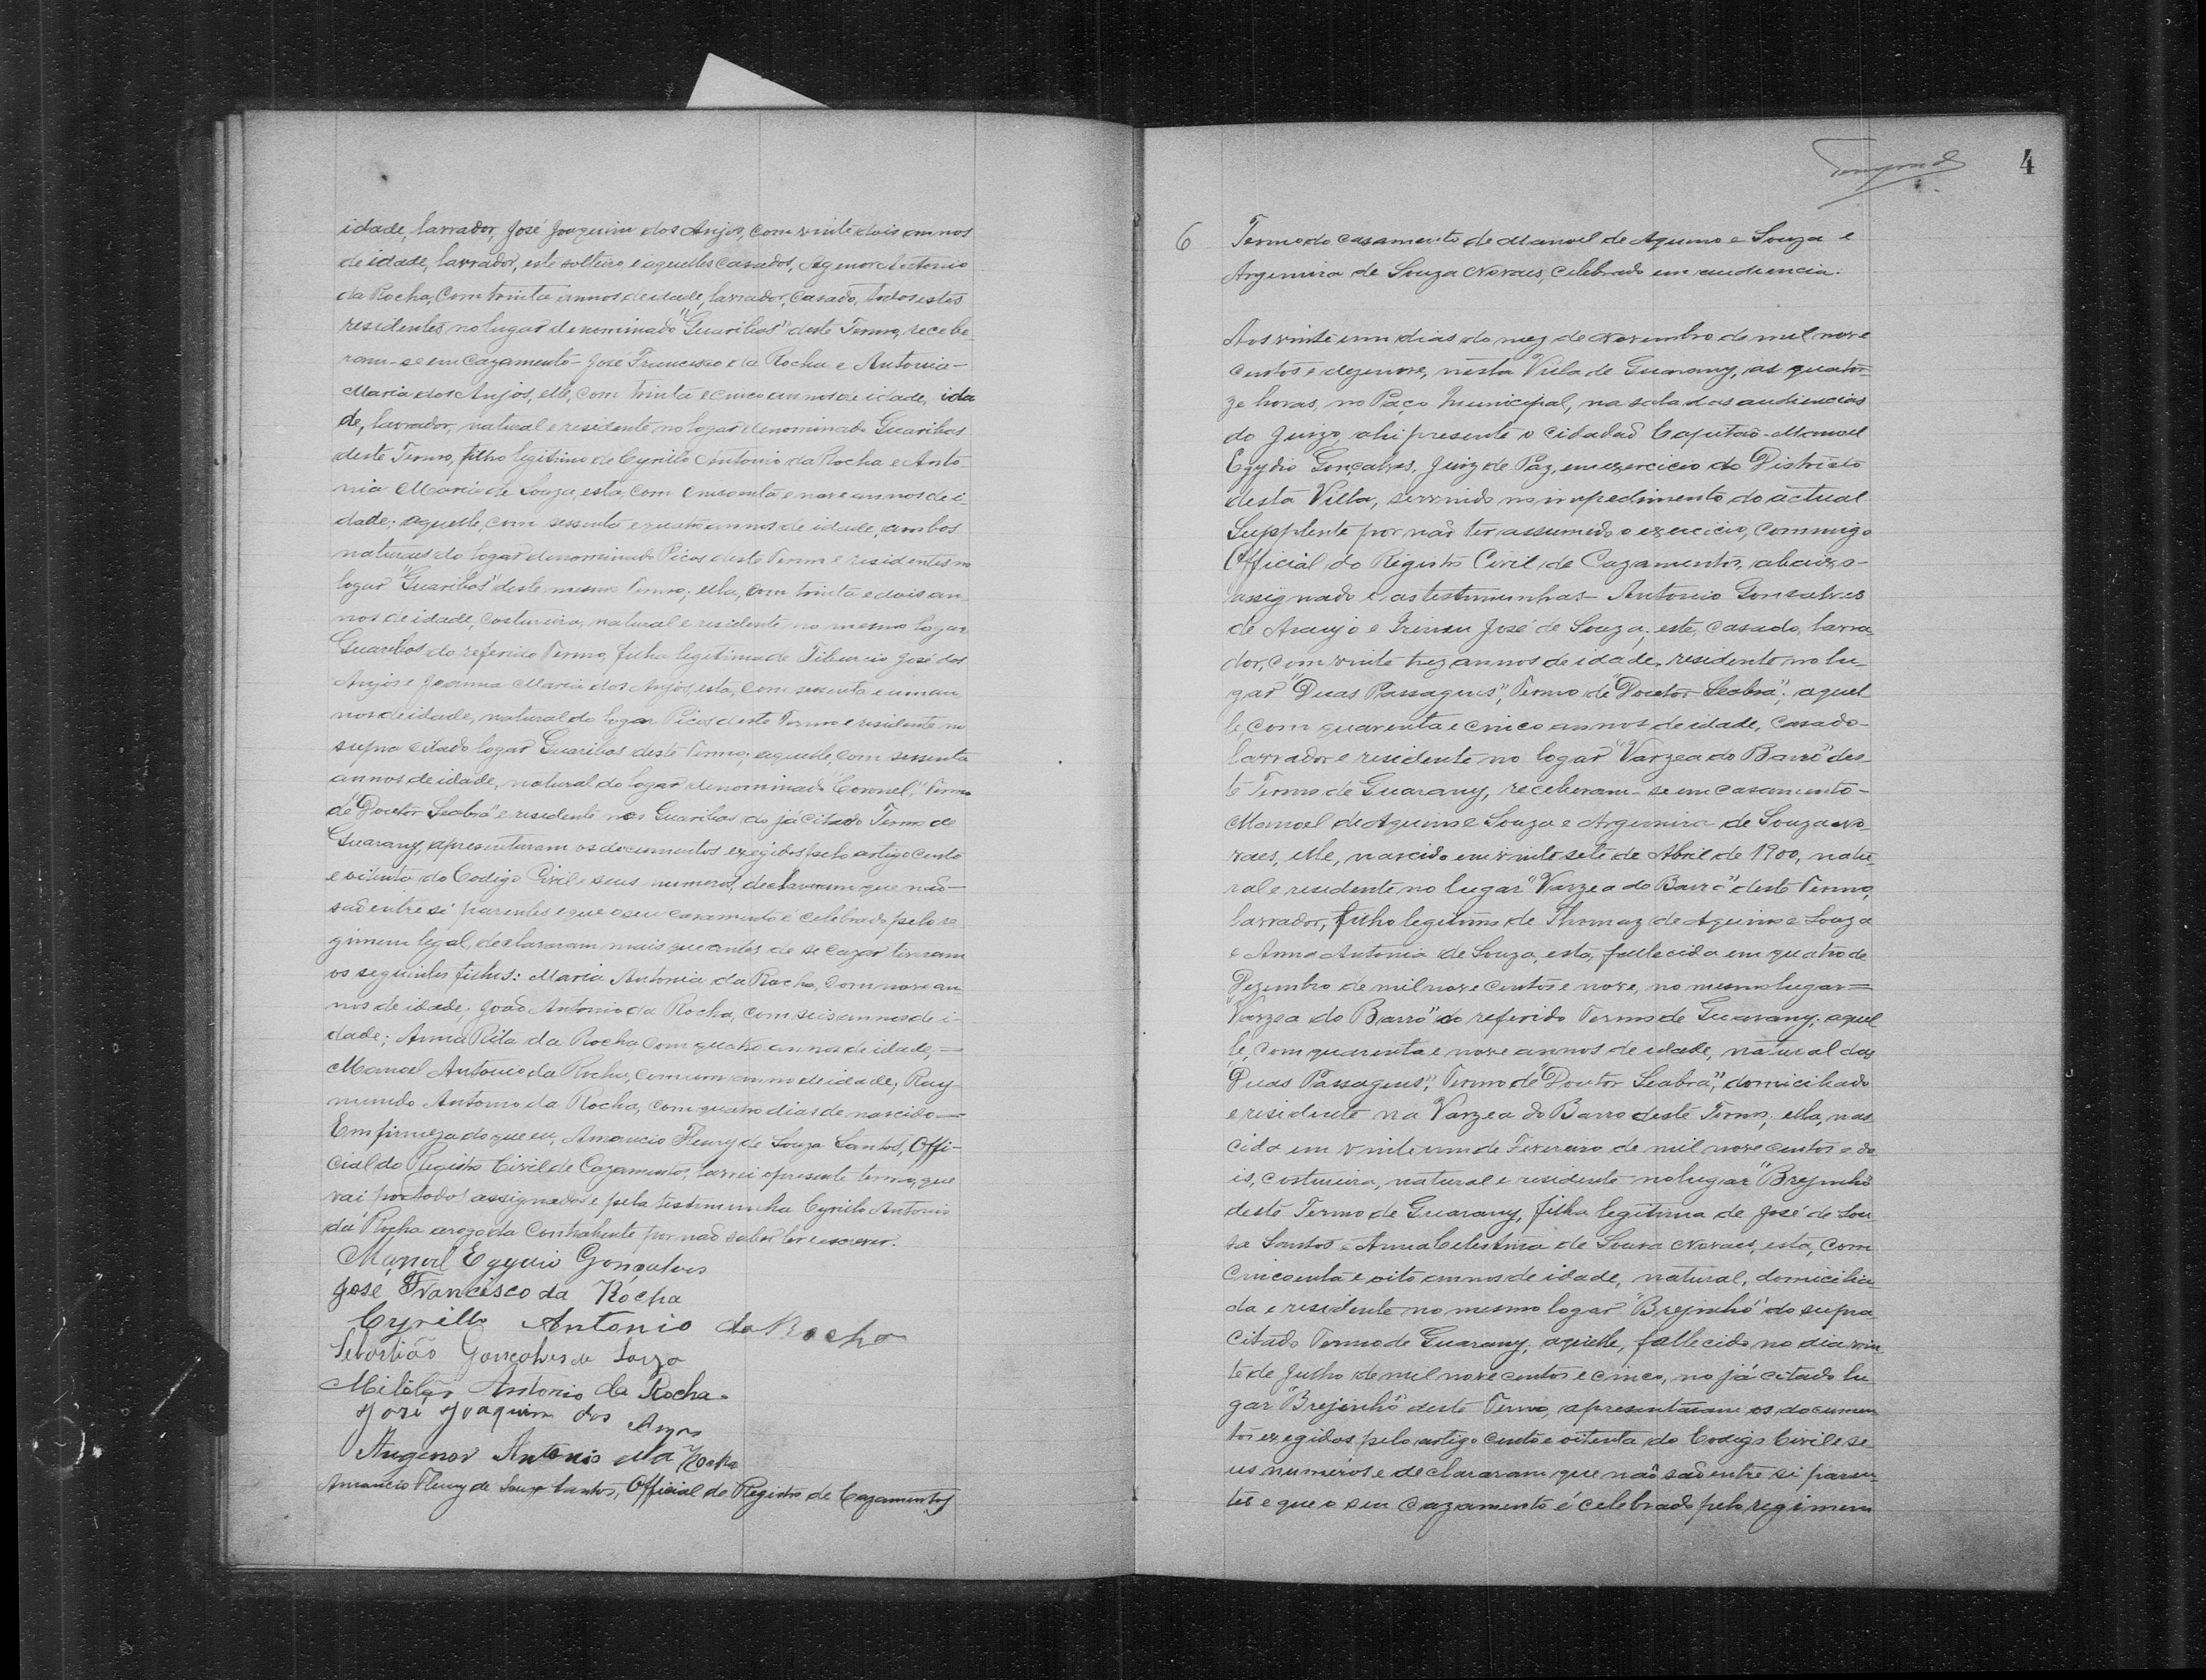 idade, lavrador, José Joaquim dos Anjos, com vinte dois annos
de idade, lavrador, este solteiro, e aquelles casados, Agenor Antonio
da Rocha, com trinta annos de idade, lavrador, casado, todos estes
residentes no lugar denominado "Guaribas" deste Termo, recebe
ram-se em cazamento - José Francisco da Rocha e Antonia -
Maria dos Anjos, elle, com trinta e cinco annos de idade, ida
de, lavrador, natural e residente no logar denominado Guaribas
deste Termo, filho legitimo de Cyrillo Antonio da Rocha e Anto
nia Maria de Souza, esta, com cincoenta e nove annos de i-
dade; aquelle, com sessenta e quatro annos de idade, ambos
naturaes do logar denominado Picos deste Termo e residentes no
logar "Guaribas" deste mesmo Termo; ella, com trinta e dois an
nos de idade, costureira, natural e residente no mesmo logar
Guaribas do referido Termo, filha legitima de Tiburcio José dos
Anjos e Joanna Maria dos Anjos, esta, com sessenta e um an
nos de idade, natural do logar Picos deste Termo e residente no
supra citado logar Guaribas deste Termo; aquelle, com sessenta
annos de idade, natural do logar denominado "Coronel," Termo
de "Doutor Seabra" e residente nos Guaribas do já citado Termo de
Guarany, apresentaram os documentos exegidos pelo artigo cento
e oitenta do Codigo Civil e seus numeros, declararam que não -
são entre si parentes e que o seu casamento é celebrado pelo re
gimem legal, declararam mais que antes de se cazar tiveram
os seguintes filhos: Maria Antonia da Rocha, com nove an
nos de idade, João Antonio da Rocha, com seis annos de i-
dade; Anna Rita da Rocha com quatro annos de idade, =
Manoel Antonio da Rocha, com um anno de idade, Ray-
mundo Antonio da Rocha, com quatro dias de nascido =
Em firmeza do que eu, Amancio Fleury de Souza Santos, Offi-
cial do Registro Civil de Cazamentos, lavrei o presente termo, que
vai por todos assignados e pela testimunha Cyrillo Antonio
da Rocha arogo da Contrahente por não saber ler e escrever.
Manoel Egydio Gonçalves
José Francisco da Rocha
Cyrillo Antonio da Rocha
Sebastião Gonçalves de Souza
Militão Antonio da Rocha.
José Joaquim dos Anjos
Angenor Antonio da Rocha
Amancio Fleury de Souza Santos, Official do Registro de Cazamentos
4
6 Termo do casamento de Manoel de Aquino e Souza e
Argemira de Souza Novaes, celebrado em audiencia.
Aos vinte um dias do mez de Novembro de mil nove
centos e dezenove, nesta Villa de Guarany, as quator
ze horas, no Paço Municipal, na sala das audiencias
do Juizo, ahi presente o cidadão Capitão - Manoel
Egydio Gonçalves, Juiz de Paz, em exercicio do Districto
desta Villa, servindo no impedimento do actual
Supplente por não ter assumido o exercicio, commigo
Official do Registro Civil de Cazamentos, abaixo -
assignado e as testimunhas - Antonio Gonsalves
de Araujo e Irineu José de Souza; este, casado, lavra
dor, com vinte trez annos de idade, residente no lu-
gar "Duas Passagens", Termo de "Doutor Seabra"; aquel
le, com quarenta e cinco annos de idade, casado -
lavrador e residente no logar "Varzea do Barro" des-
te Termo de Guarany, receberam-se em casamento -
Manoel de Aquino e Souza e Argemira de Souza No-
vaes, elle, nascido em vinte sete de Abril de 1900, natu
ral e residente no lugar "Varzea do Barro" deste Termo,
lavrador, filho legitimo de Thomaz de Aquino e Souza
e Anna Antonia de Souza, esta, fallecida em quatro de
Dezembro de mil nove centos e nove, no mesmo lugar =
Varzea do Barro" do referido Termo de Guarany; aquel
le, com quarenta e nove annos de idade, natural das
"Duas Passagens", Termo de "Doutor Seabra," domiciliado
e residente na Varzea do Barro deste Termo; ella, nas
cida em vinte um de Fevereiro de mil nove centos e do
is, costureira, natural e residente no lugar "Brejinho"
deste Termo de Guarany, filha legitima de José de Sou
sa Santos e Anna Celestina de Souza Novaes, esta, com
cincoenta e oito annos de idade, natural, domicilia
da e residente no mesmo logar "Brejinho" do supra
citado Termo de Guarany, aquelle, fallecido no dia vin
te de Julho de mil nove centos e cinco, no já citado lu
gar "Brejinho" deste Termo, apresentaram os documen
tos exegidos pelo artigo cento e oitenta do Codigo Civil e se
us numeros e declararam que não são entre si paren
tes e que o seu cazamento é celebrado pelo regimem